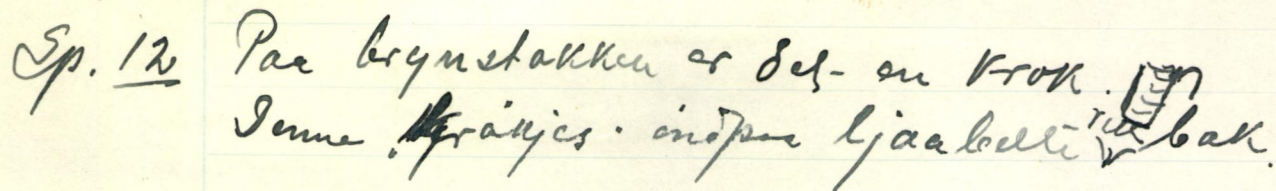 Sp. 12 Paa brynstokken er det en krok.
Denne krökjes innpaa ljaabelte rett bak.